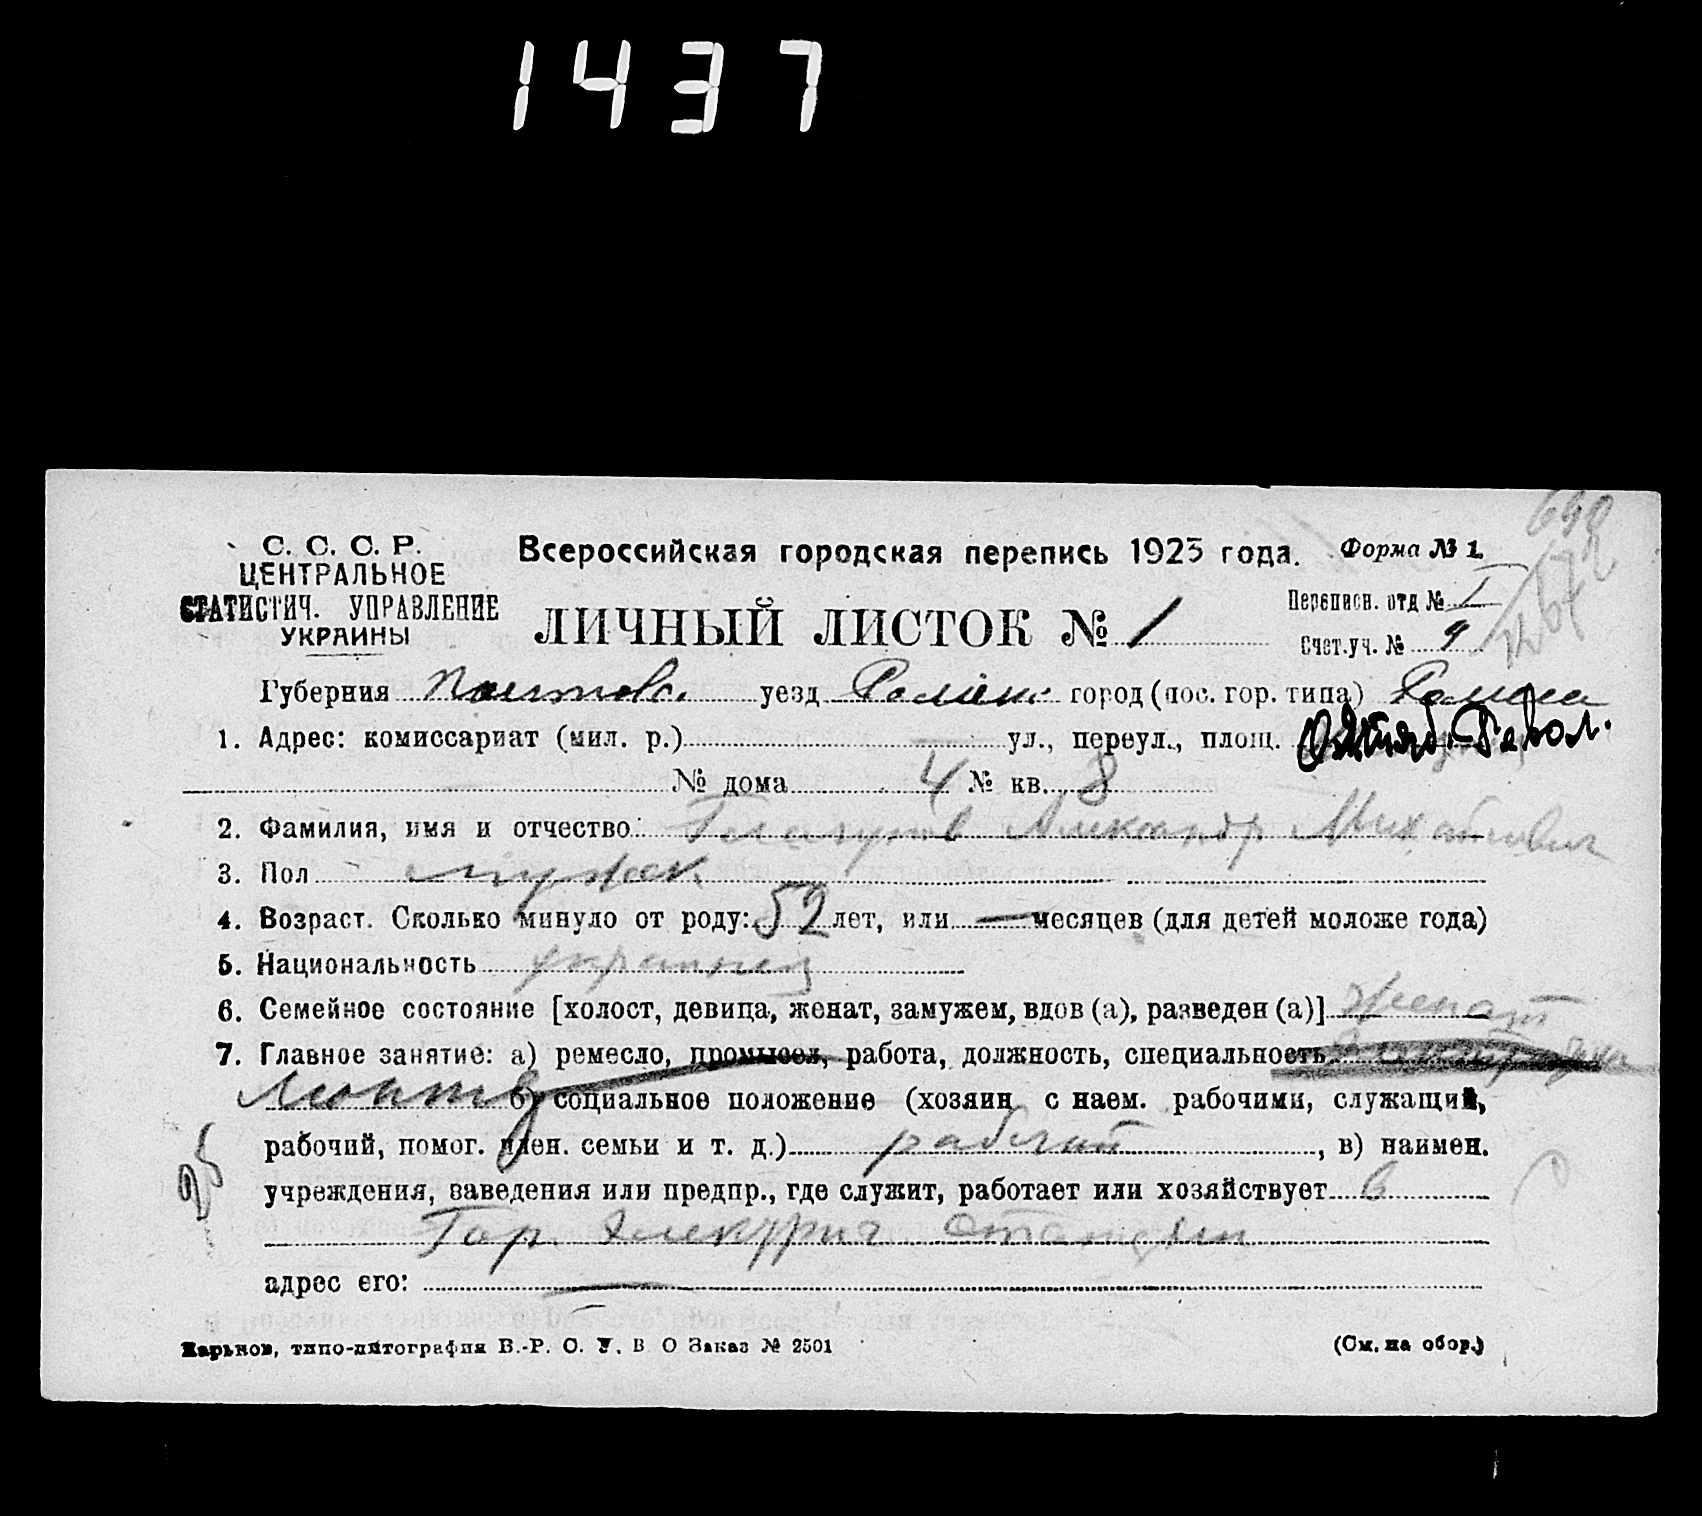 1437
698
672
С. С. С. Р.
ЦЕНТРАЛЬНОЕ
СТАТИСТИЧ. УПРАВЛЕНИЕ
УКРАИНЫ
Всероссийская городская перепись 1923 года.
Форма № 1.
ЛИЧНЫЙ ЛИСТОК № 1
Переписн. отд № I
Счет.уч. № 9
Губерния Полтавс. уезд Роменс. город (пос. гор. типа) Ромны
1. Адрес: комиссариат (мил. р.) — ул., переул., площ. Октяб. Револ.
№ дома 4 № кв. 8
2. Фамилия, имя и отчество: Александр Михайлович
3. Пол мужск.
4. Возраст. Сколько минуло от роду: 52 лет, или — месяцев (для детей моложе года)
5. Национальность украинец
6. Семейное состояние [холост, девица, женат, замужем, вдов (а), разведен (а)] Женат
7. Главное занятие: а) ремесло, промысел, работа, должность, специальность
Монтер б) социальное положение (хозяин с наем. рабочими, служащий,
рабочий, помог. член. семьи и т. д.) рабочий, в) наимен.
учреждения, заведения или предпр., где служит, работает или хозяйствует в
Гор. Электрич. Станции
адрес его: —
Харьков, типо-литография В.-Р. С. У. В О Заказ № 2501
(См. на обор.)